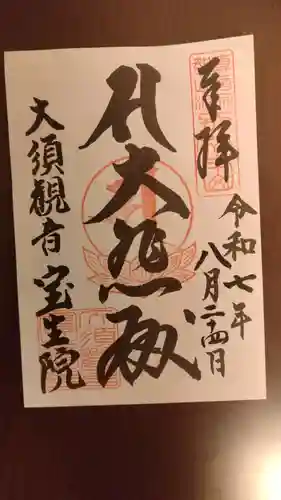 奉拝
令和七年
八月二十四日
大悲殿
大須観音
宝生院